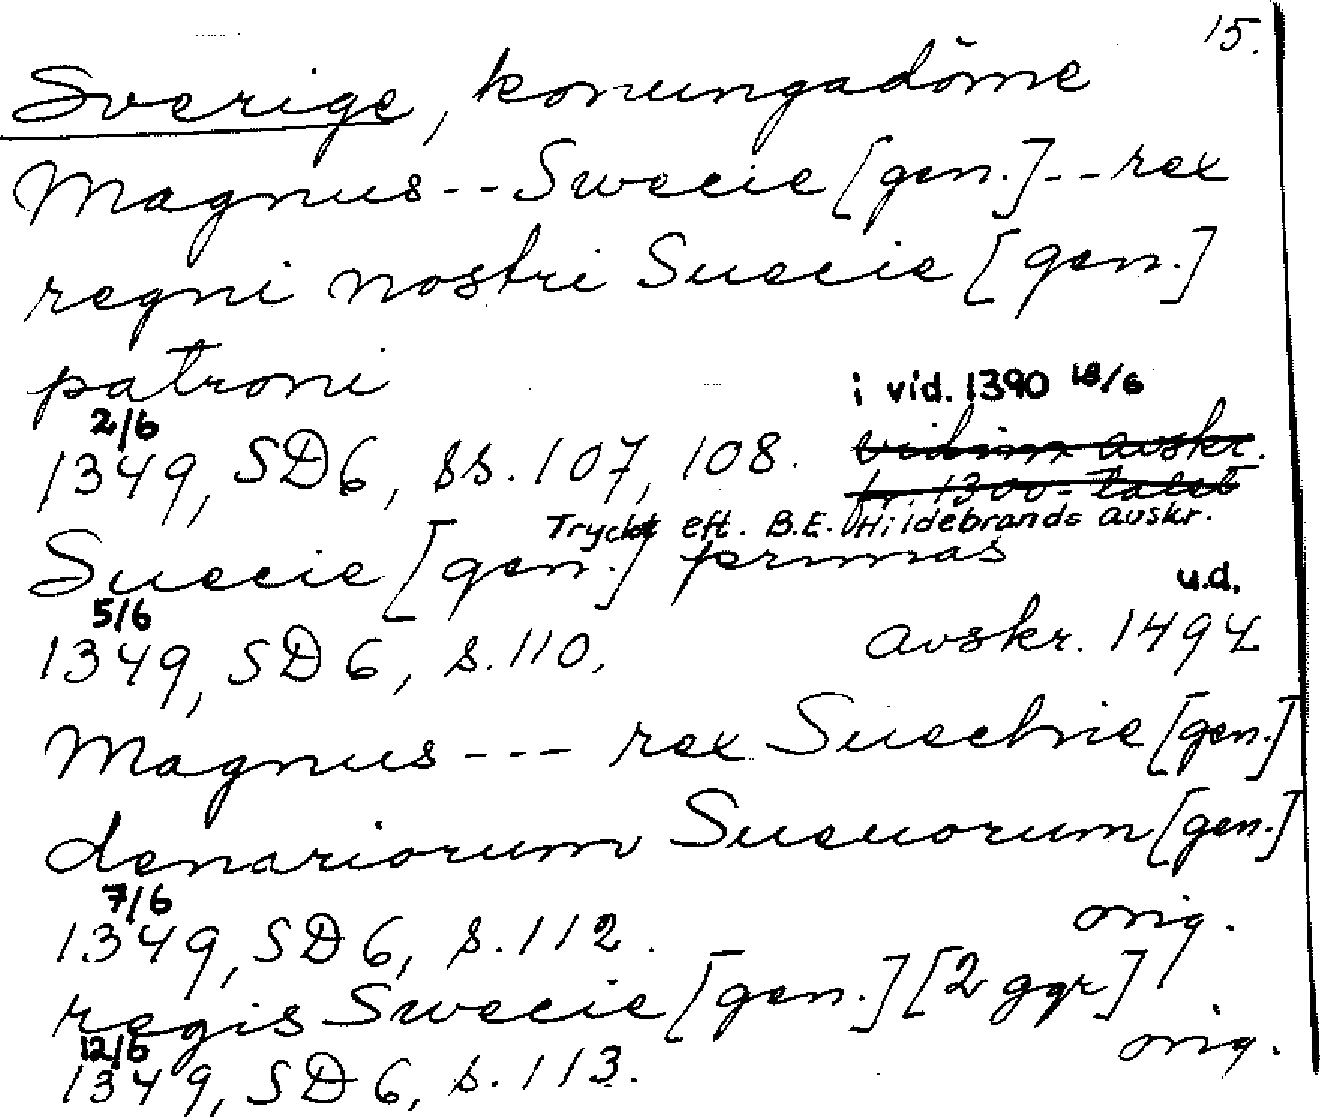 15.
Sverige, konungadöme
Magnus -- Swecie [gen.] -- rex
regni nostri Suecie [gen.]
patroni
i vid. 1390 18/6
2/6
1349, SD 6, ss. 107, 108. vidim. avskr.
fr. 1300-talet
Tryckt eft. B.E. Hildebrands avskr.
Suecie [gen.] primas
5/6 u.d.
1349, SD 6, s. 110, avskr. 1494
Magnus --- rex Suechie [gen.]
denariorum Sueuorum [gen.]
7/6
1349, SD 6, s. 112. orig.
regis Swecie [gen.] [2 ggr]
12/6
1349, SD 6, s. 113. orig.